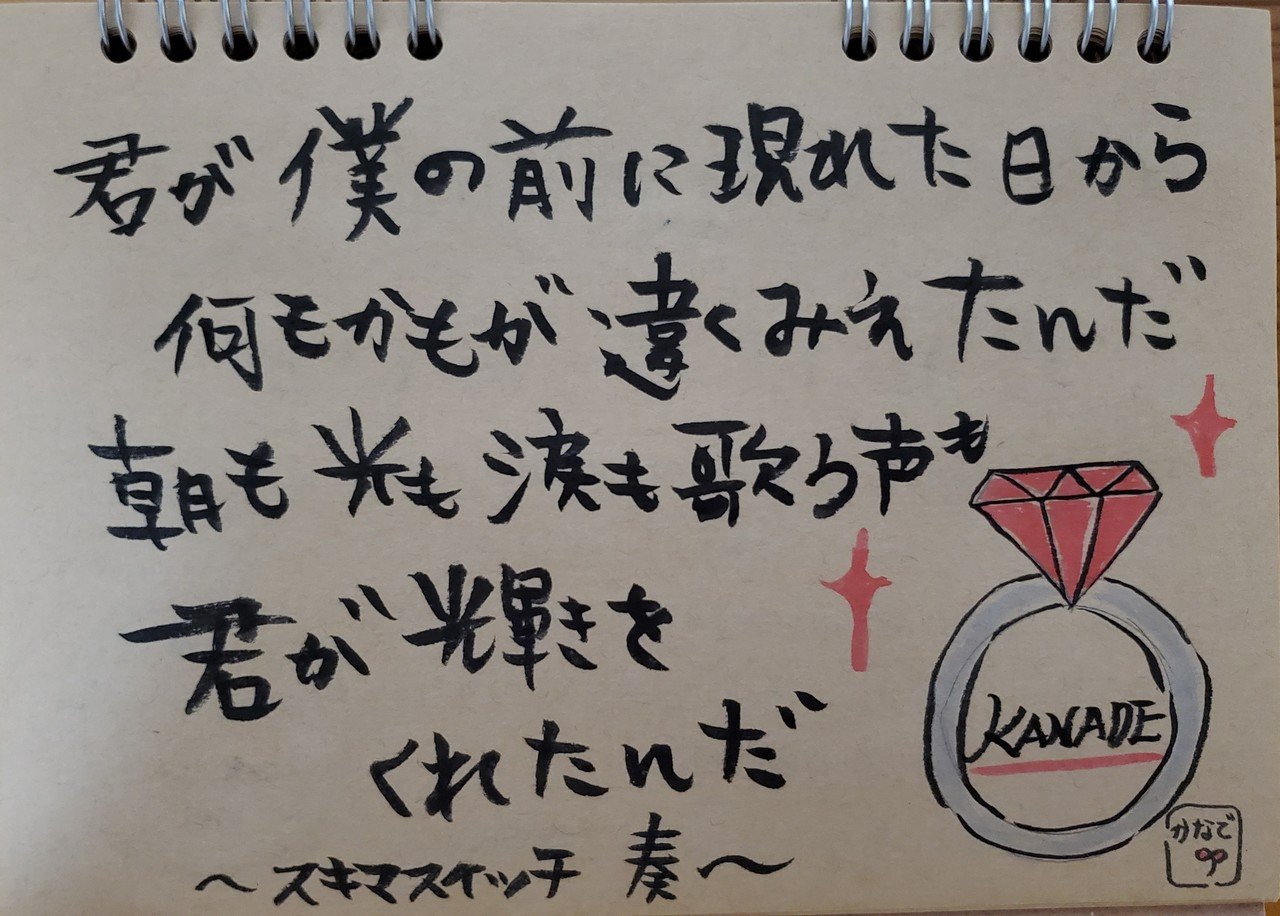 君が僕の前に現れた日から
何もかもが違くみえたんだ
朝も光も涙も歌う声も
君が輝きを
くれたんだ
～スキマスイッチ 奏～
KANADE
かなで